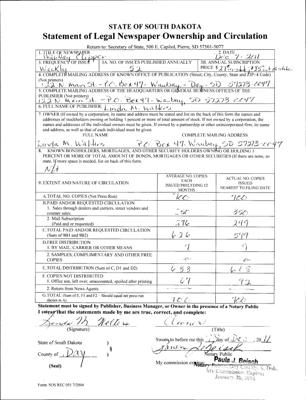 STATE OF SOUTH DAKOTA
Statement of Legal Newspaper Ownership and Circulation
Return to: Secretary of State, 500 E. Capitol, Pierre, SD 57501-5077
1. TITLE OF NEWSPAPER
2. DATE
Clipper
Dec 7, 2011
3. FREQUENCY OF ISSUE
3A. NO. OF ISSUES PUBLISHED ANNUALLY
3B. ANNUAL SUBSCRIPTION PRICE
Weekly 52
4. COMPLETE MAILING ADDRESS OF KNOWN OFFICE OF PUBLICATION (Street, City, County, State and ZIP+4 Code) (Not printers)
122 N Main St - P.O. Box 47 - Waubay - Day - SD 57273-0047
5. COMPLETE MAILING ADDRESS OF THE HEADQUARTERS OF GENERAL BUSINESS OFFICES OF THE PUBLISHER
122 N Main St - P.O. Box 47 - Waubay, SD 57273-0047
6. FULL NAME OF PUBLISHER: Linda M. Walters
7. OWNER (If owned by a corporation, its name and address must be stated and also
address, as well as that of each individual must be given.
FULL NAME COMPLETE MAILING ADDRESS
Linda M. Walters P.O. Box 47, Waubay, SD 57273-0047
8. KNOWN BONDHOLDERS, MORTGAGEES, AND OTHER SECURITY HOLDERS OWNING OR HOLDING 1
PERCENT OR MORE OF TOTAL AMOUNT OF BONDS, MORTGAGES OR OTHER SECURITIES (If there are none, so
state. If more space is needed, list on back of this form.
N/A
9. EXTENT AND NATURE OF CIRCULATION
AVERAGE NO. COPIES EACH ISSUED PRECEDING 12 MONTHS
ACTUAL NO. COPIES ISSUED NEAREST TO FILING DATE
A. TOTAL NO. COPIES (Net Press Run) 700 700
B. PAID AND/OR REQUESTED CIRCULATION
1. Sales through dealers and carriers, street vendors and counter sales. 350 350
2. Mail Subscription (Paid and or requested) 276 249
C. TOTAL PAID AND/OR REQUESTED CIRCULATION (Sum of 9B1 and 9B2) 626 599
D. FREE DISTRIBUTION
1. BY MAIL, CARRIER OR OTHER MEANS
2. SAMPLES, COMPLIMENTARY AND OTHER FREE COPIES
E. TOTAL DISTRIBUTION (Sum of C, D1 and D2)
F. COPIES NOT DISTRIBUTED
1. Office use, left over, unaccounted, spoiled after printing
2. Return from News Agents
G. TOTAL (Sum of E, F1 and F2 - Should equal net press run shown in A) 700 700
Statement must be signed by Publisher, Business Manager, or Owner in the presence of a Notary Public
I swear that the statements made by me are true, correct, and complete:
(Signature) (Title)
State of South Dakota )
County of Day )
(Seal)
Notary Public
My commission expires:
Paula J. Baloch
Form: SOS REC 051 7/2004